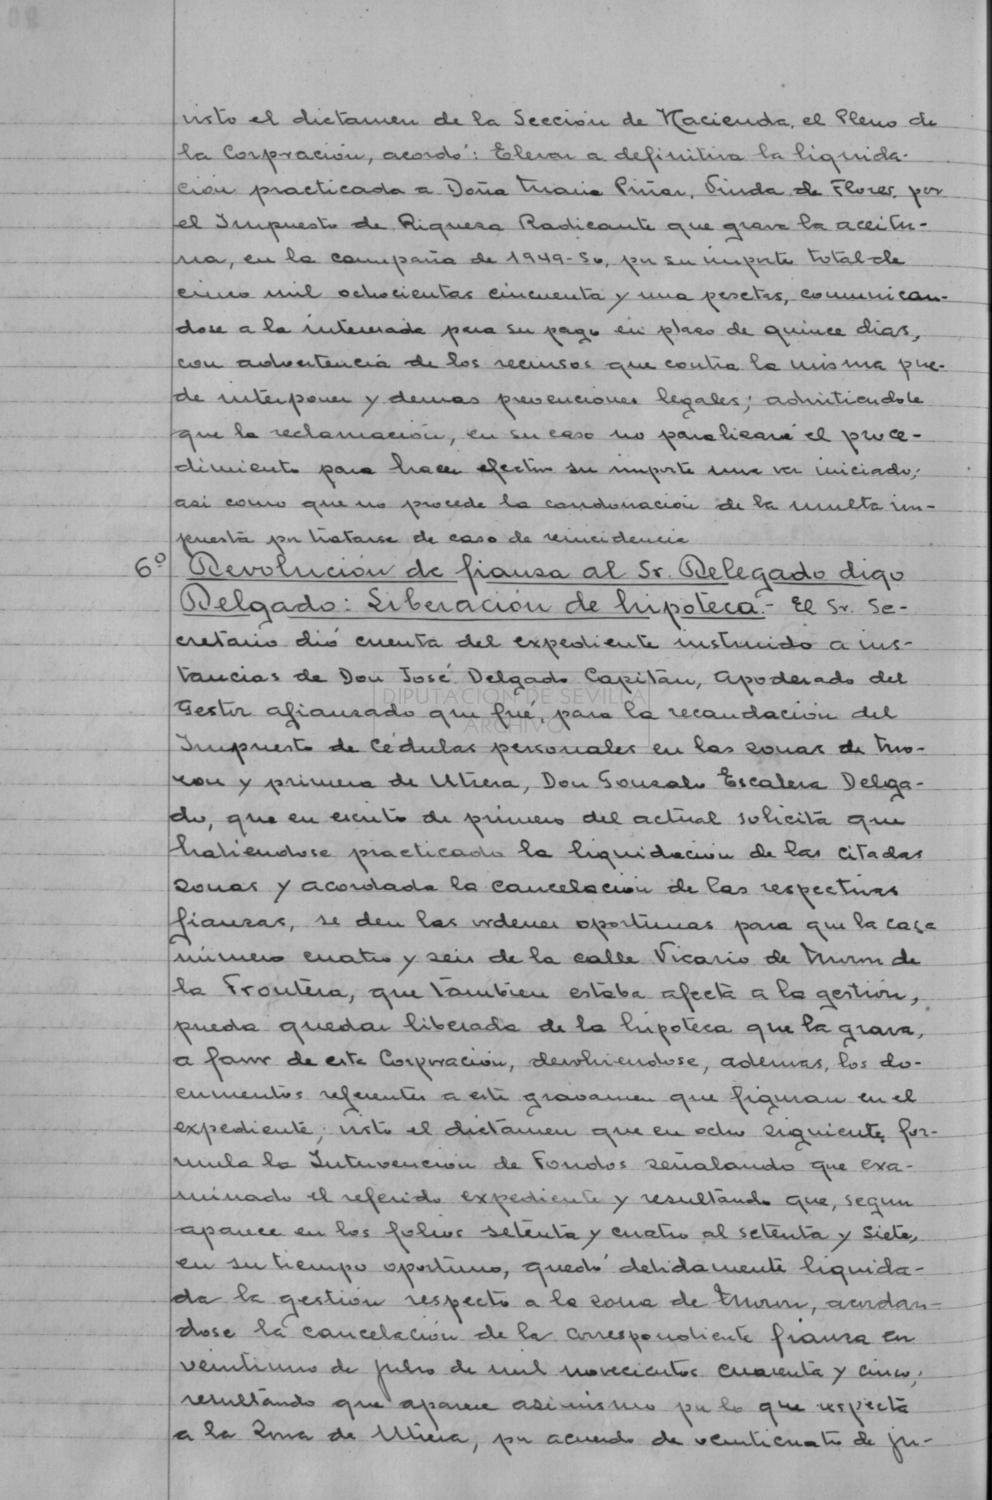 visto el dictamen de la Sección de Hacienda, el Pleno de
la Corporación, acordó: Elevar a definitiva la liquida-
ción practicada a Doña Maria Piñar, Viuda de Flores, por
el Impuesto de Riqueza Radicante que grava la aceitu-
na, en la campaña de 1949-50, por su importe total de
cinco mil ochocientas cincuenta y una pesetas, comunican-
dose a la interesada para su pago en plazo de quince dias,
con advertencia de los recursos que contra la misma pue-
de interponer y demas prevenciones legales; advirtiendole
que la reclamación, en su caso no paralizará el proce-
dimiento para hacer efectivo su importe una vez iniciado;
asi como que no procede la condonación de la multa im-
puesta por tratarse de caso de reincidencia
6º Devolución de fianza al Sr. Delegado digo
Delgado: Liberación de hipoteca.- El Sr. Se-
cretario dió cuenta del expediente instruido a ins-
tancias de Don José Delgado Capitán, Apoderado del
Gestor afianzado que fué, para la recaudación del
Impuesto de Cédulas personales en las zonas de Mo-
ron y primera de Utrera, Don Gonzalo Escalera Delga-
do, que en escrito de primero del actual solicita que
habiendose practicado la liquidación de las citadas
zonas y acordada la cancelación de las respectivas
fianzas, se den las ordenes oportunas para que la casa
número cuatro y seis de la calle Vicario de Moron de
la Frontera, que tambien estaba afecta a la gestión,
pueda quedar liberada de la hipoteca que la grava,
a favor de esta Corporación, devolviendose, ademas, los do-
cumentos referentes a este gravamen que figuran en el
expediente; visto el dictámen que en ocho siguiente, for-
mula la Intervención de Fondos señalando que exa-
minado el referido expediente y resultando que, segun
aparece en los folios setenta y cuatro al setenta y siete,
en su tiempo oportuno, quedó debidamente liquida-
da la gestión respecto a la zona de Moron, acordan-
dose la cancelación de la correspondiente fianza en
veintiuno de julio de mil novecientos cuarenta y cinco;
resultando que aparece asimismo por lo que respecta
a la Zona de Utrera, por acuerdo de veinticuatro de ju-
DIPUTACIÓN DE SEVILLA
ARCHIVO